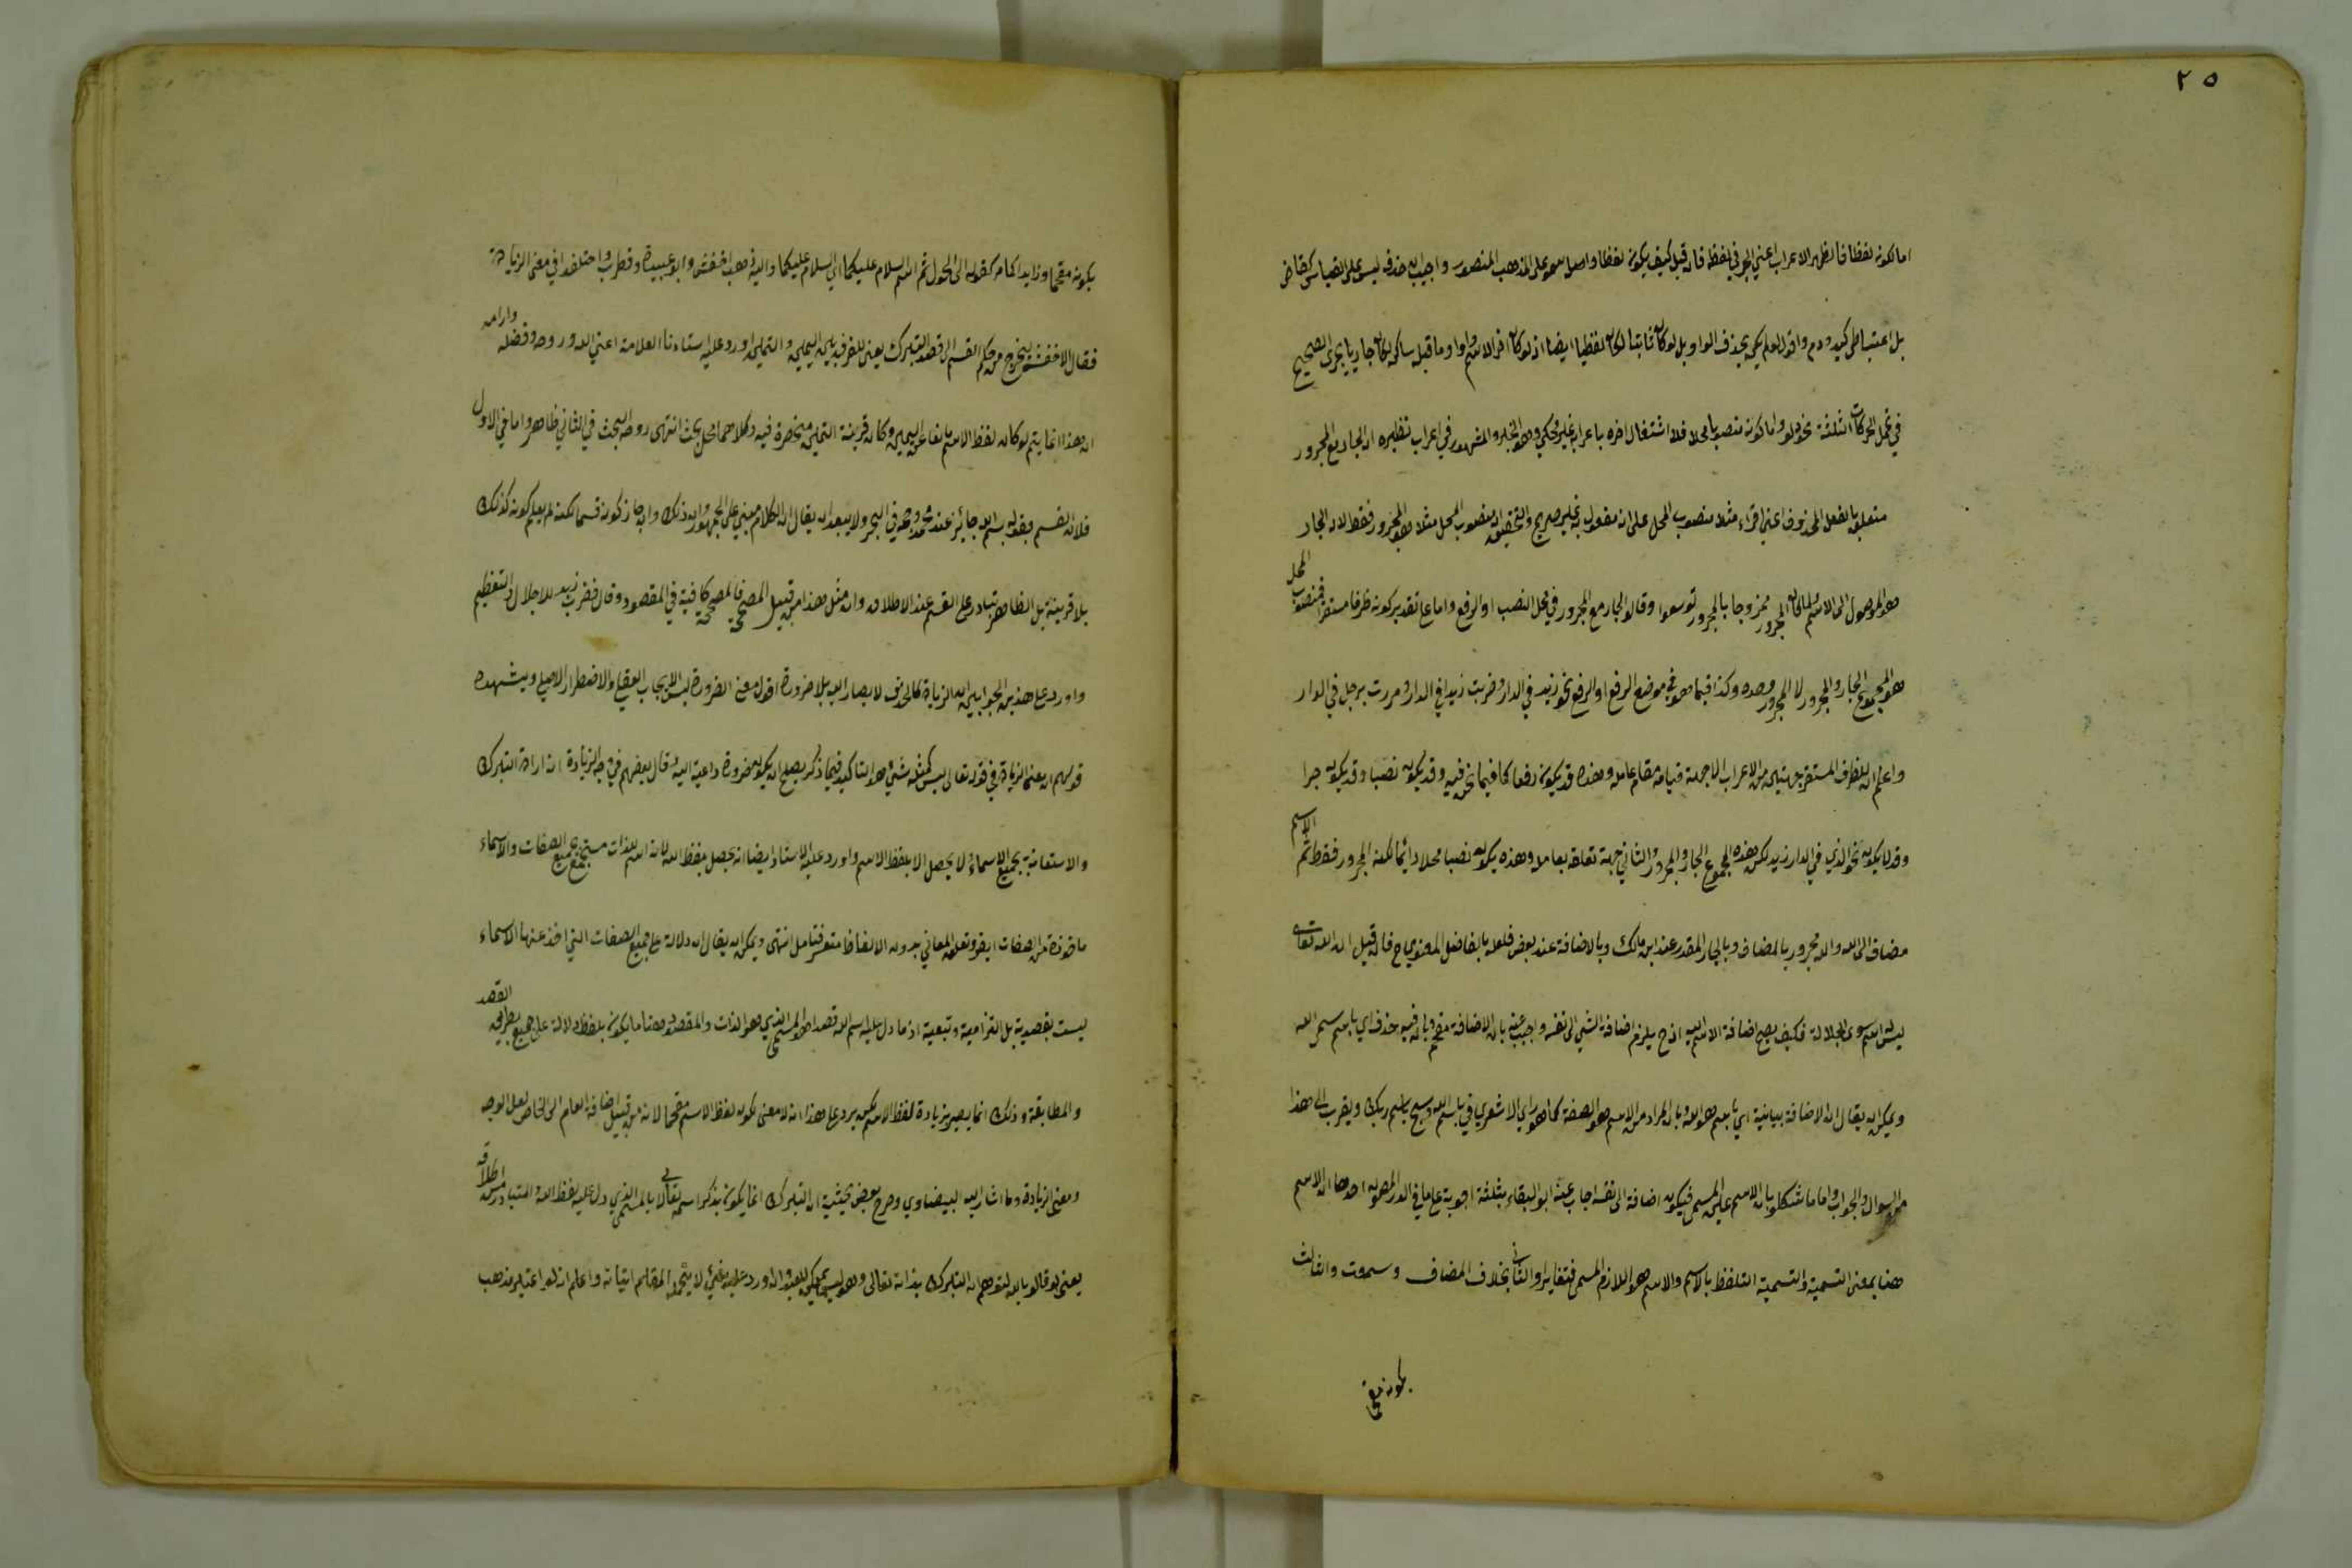 ٢٥
اما كونه لفظا فانظهر الاعراب اعني الجر في لفظه فان قيل كيف يكون لفظا واصله سمو على المذهب المنصور واجيب بان حذفه ليس على القياس كقاض
بل اعتباطي كيد ودم واقول لو لم يكن بحذف الواو بل لو كان ثابتا لكان لفظيا ايضا اذ لو كان اخر الاسم واوا وما قبله ساكن لكان جاريا مجرى الصحيح
في تحمل الحركات الثلثة نحو دلو واما كونه منصوبا محلا فلاشتغال اخره باعراب غير محكي وهو الجر والمشهور في اعراب نظيره ان الجار مع المجرور
متعلق بالفعل المحذوف اعني اقراء مثلا منصوب المحل على انه مفعول به غير صريح والتحقيق ان منصوب المحل مثلا هو المجرور فقط لان الجار
هو الموصول الى الاسم ولما كان المجرور ممزوجا بالمجرور توسعوا وقالوا الجار مع المجرور في محل النصب او الرفع واما ع تقدير كونه ظرفا مستقرا فمنصوب المحل
هو المجموع الجار والمجرور لا المجرور وحده وكذا فيما هو في موضع الرفع او الرفع نحو زيد في الدار وضربت زيدا في الدار ومررت برجل في الدار
واعلم ان للظرف المستقر جهتين من الاعراب الاجهة قيامه مقام عامله وهذه قد يكون رفعا كما فيما نحن فيه وقد يكون نصبا وقد يكون جرا
وقد لا يكون نحو الذي في الدار زيد لكن هذه المجموع الجار والمجرور والثاني جهة تعلقه بعامله وهذه يكون نصبا محلا دائما لكنه المجرور فقط ثم الاسم
مضاف الى الله والله مجرور بالمضاف وبالجار المقدر عند ابن مالك وبالاضافة عند بعض فلعله بالفاضل المعنوي ح فان قيل ان الله تعالى
ليس له اسم سوى الجلالة فكيف يصح اضافة الاسم اليه اذ ح يلزم اضافة الشيئ الى نفسه واجيب عنه بان الاضافة مقحم وبانه فيه حذف اي باسم مسمى الله
ويمكن ان يقال ان الاضافة بيانية اي باسم هو الله وبان المراد من الاسم هو الصفة كما هو راي الاشعري في باسم الله وسبح باسم ربك ويقرب الى هذا
من السوال والجواب واما ما شكلوا بان الاسم عين المسمى فيكون اضافة الى نفسه اجاب عنه ابو البقاء بثلثة اجوبة ع ما في الدر المصون احدها ان الاسم
هنا بمعنى التسمية والتسمية التلفظ بالاسم والاسم هو اللازم المسمى فتغايرا والثاني بخلاف المضاف وسموت والثالث
بكونه مقحما
يكون مقحما وزايدا كما مر كقوله الى الحول ثم اسم السلام عليكما اي السلام عليكما واليه ذهب اخفش وابو عبيدة وقطرب واختلفوا في معنى الزيادة
فقال الاخفش ليخرج من حكم القسم الى قصد التبرك يعني للفرق بين اليمين والتيمن واورد عليه استاذنا العلامة اعني الله وروحه وفضله وارامه
ان هذا انما يتم لو كان لفظ الاسم مانعا عن اليمين وكان قرينة التيمن منحصرة فيه وكلاهما محل بحث انتهى روحه البحث في الثاني ظاهر واما في الاول
فلان القسم بقوله بسم الله جائز عند محمد وصح في البحر ولا يبعد ان يقال ان الكلام مبني على الجمهور وان ذلك وان جاز كونه قسما لكنه لم يعلم كونه كذلك
بلا قرينة بل الظاهر تبادر على القسم عند الاطلاق وان مثل هذا من قبيل المصحح فالمصححة كافية في المقصود وقال قطرب زيد للاجلال والتعظيم
واورد على هذين الجوابين ان الزيادة كالحذف لا يصار اليه بلا ضرورة اقول معنى الضرورة ليس الايجاب العقلي والاضطرار الاصلي ويشهده
قولهم ان معنى الزيادة في قوله تعالى ليس كمثله شيئ هو التاكيد فيما ذكر يصلح ان يكون ضرورة داعية اليه وقال بعضهم في وجه الزيادة انه اراد التبرك
والاستعانة بجميع الاسماء لا يحصل الا بلفظ الاسم واورد عليه الاستاذ ايضا انه يحصل بلفظ الله لانه اسم للذات مستجمع جميع الصفات والاسماء
ماخوذة من الصفات ايقو وتعلق المعاني بدون الالفاظ متعسر فتامل انتهى ويمكن ان يقال ان دلالة ع جميع الصفات التي اخذ عنها الاسماء
ليست بقصدية بل التزامية وتبعية اذ ما دل عليه اسم الله قصدا هو المسمى الذي هو الذات والمقصود هنا ما يكون بلفظ دلالة على جميع بطريق القصد
والمطابقة وذلك انما يصير بزيادة لفظ الاسم لكن يرد ع هذا انه لا معنى لكون لفظ الاسم مقحما لانه من قبيل اضافة العام الى الخاص لعل الوجه
ومعنى الزيادة وما اشار اليه البيضاوي وصرح بعض محشيه ان التبرك انما يكون بذكر اسمه تعالى لا بالمسمى الذي دل عليه لفظ الله والمتبادر من اطلاقه
يعني لو قالوا بالله لتوهم ان التبرك بذاته تعالى وهو ليس بممكن للعبد واورد عليه بشيئ لا يتحمله المقام اتيانه واعلم انه لو اعتبر مذهب